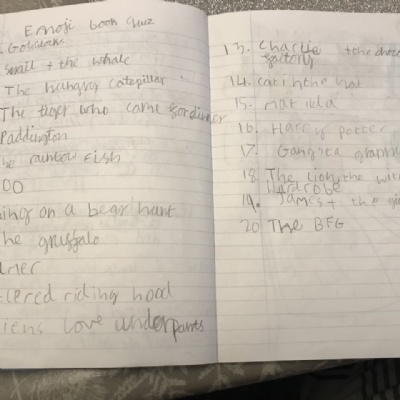 Emoji book Quiz
Goldilocks
Snail + the whale
The hungry caterpillar
The tiger who came for dinner
Paddington
he rainbow fish
oo
ing on a bear hunt
he gruffalo
red riding hood
iens love underpants
13. Charlie + the choc
factory
14. cat in the hat
15. matilda
16. Harry potter
17. Gangsta
18. The lion, the wit
19. James + the gi
20 The BFG